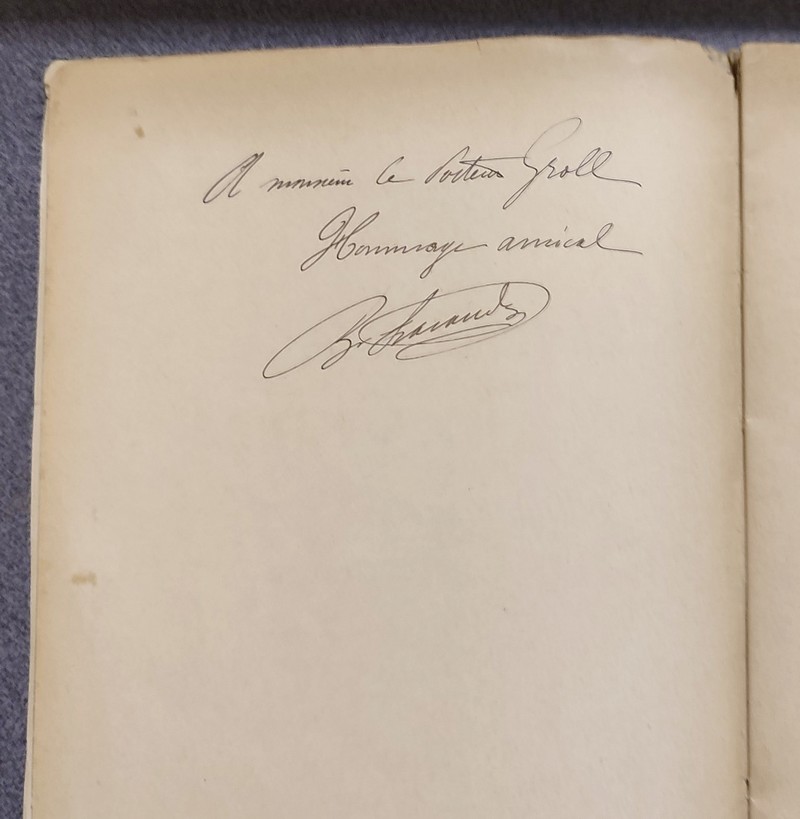 A monsieur le Docteur Groll
Hommage amical